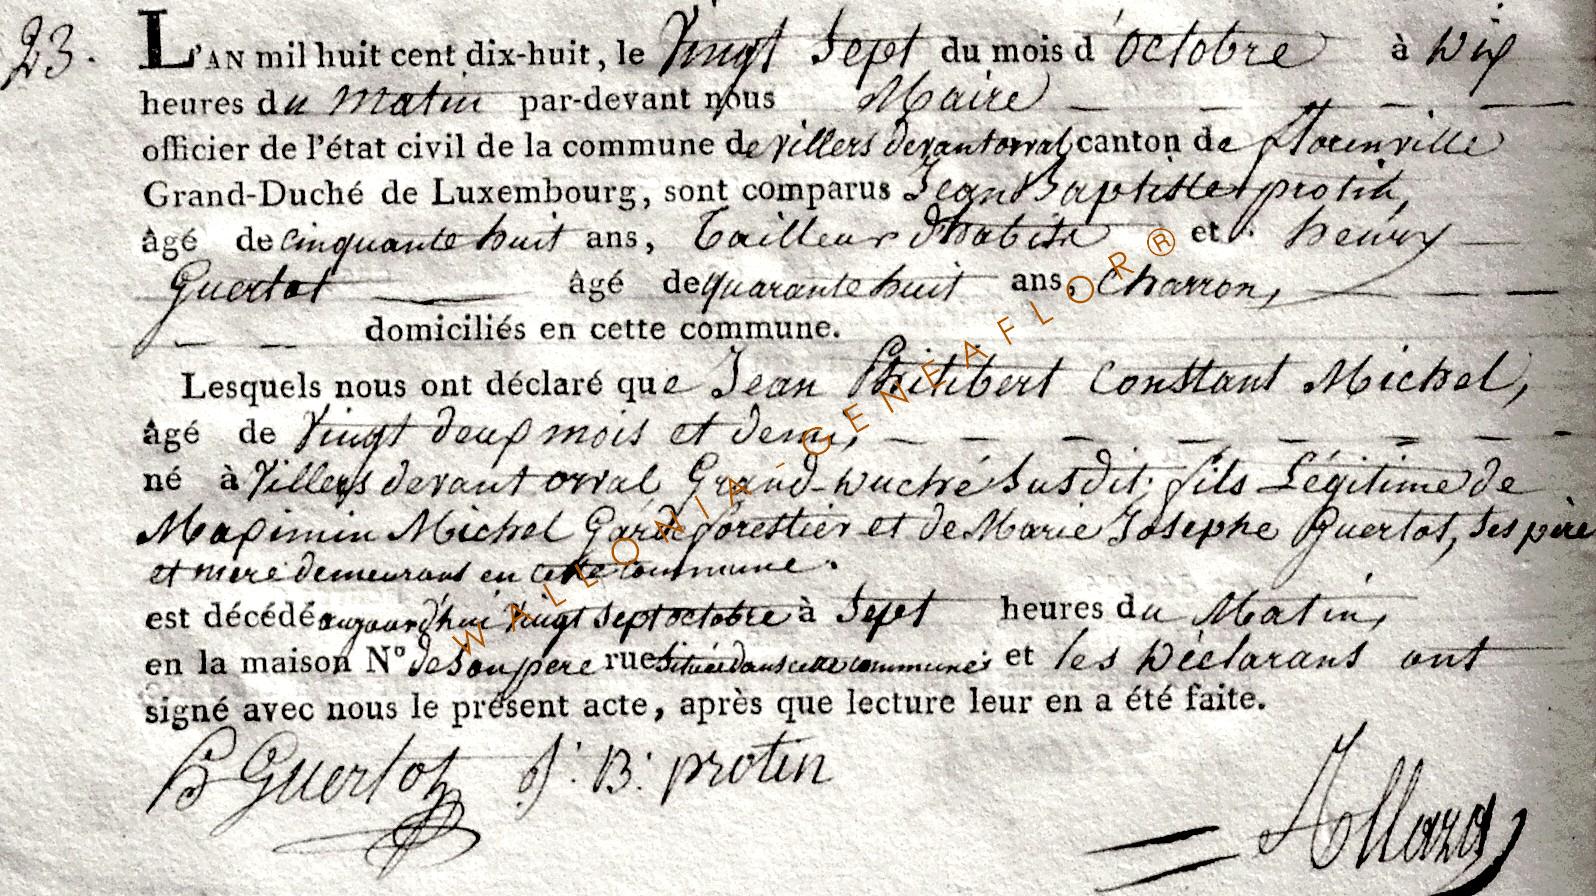 23.
L'AN mil huit cent dix-huit, le Vingt Sept du mois d'octobre à Dix
heures du Matin par-devant nous Maire
officier de l'état civil de la commune de Villers devant orval canton de florenville
Grand-Duché de Luxembourg, sont comparus Jean Baptiste protin,
âgé de cinquante huit ans, Tailleur d'habits et henry
Guertot âgé de quarante huit ans, Charron,
domiciliés en cette commune.
Lesquels nous ont déclaré que Jean Philibert Constant Michel,
âgé de Vingt deux mois et demi,
né à Villers devant orval Grand-Duché Susdit, fils Légitime de
Maximin Michel Garde forestier et de Marie Josephe Guertot, ses père
et mere demeurans en cette commune.
est décédé aujourd'hui Vingt Sept octobre à Sept heures du Matin,
en la maison N° de son pere rue située dans cette commune et les Déclarans ont
signé avec nous le présent acte, après que lecture leur en a été faite.
H Guertot J. B. protin
WALLONIA-GENEAFLOR®